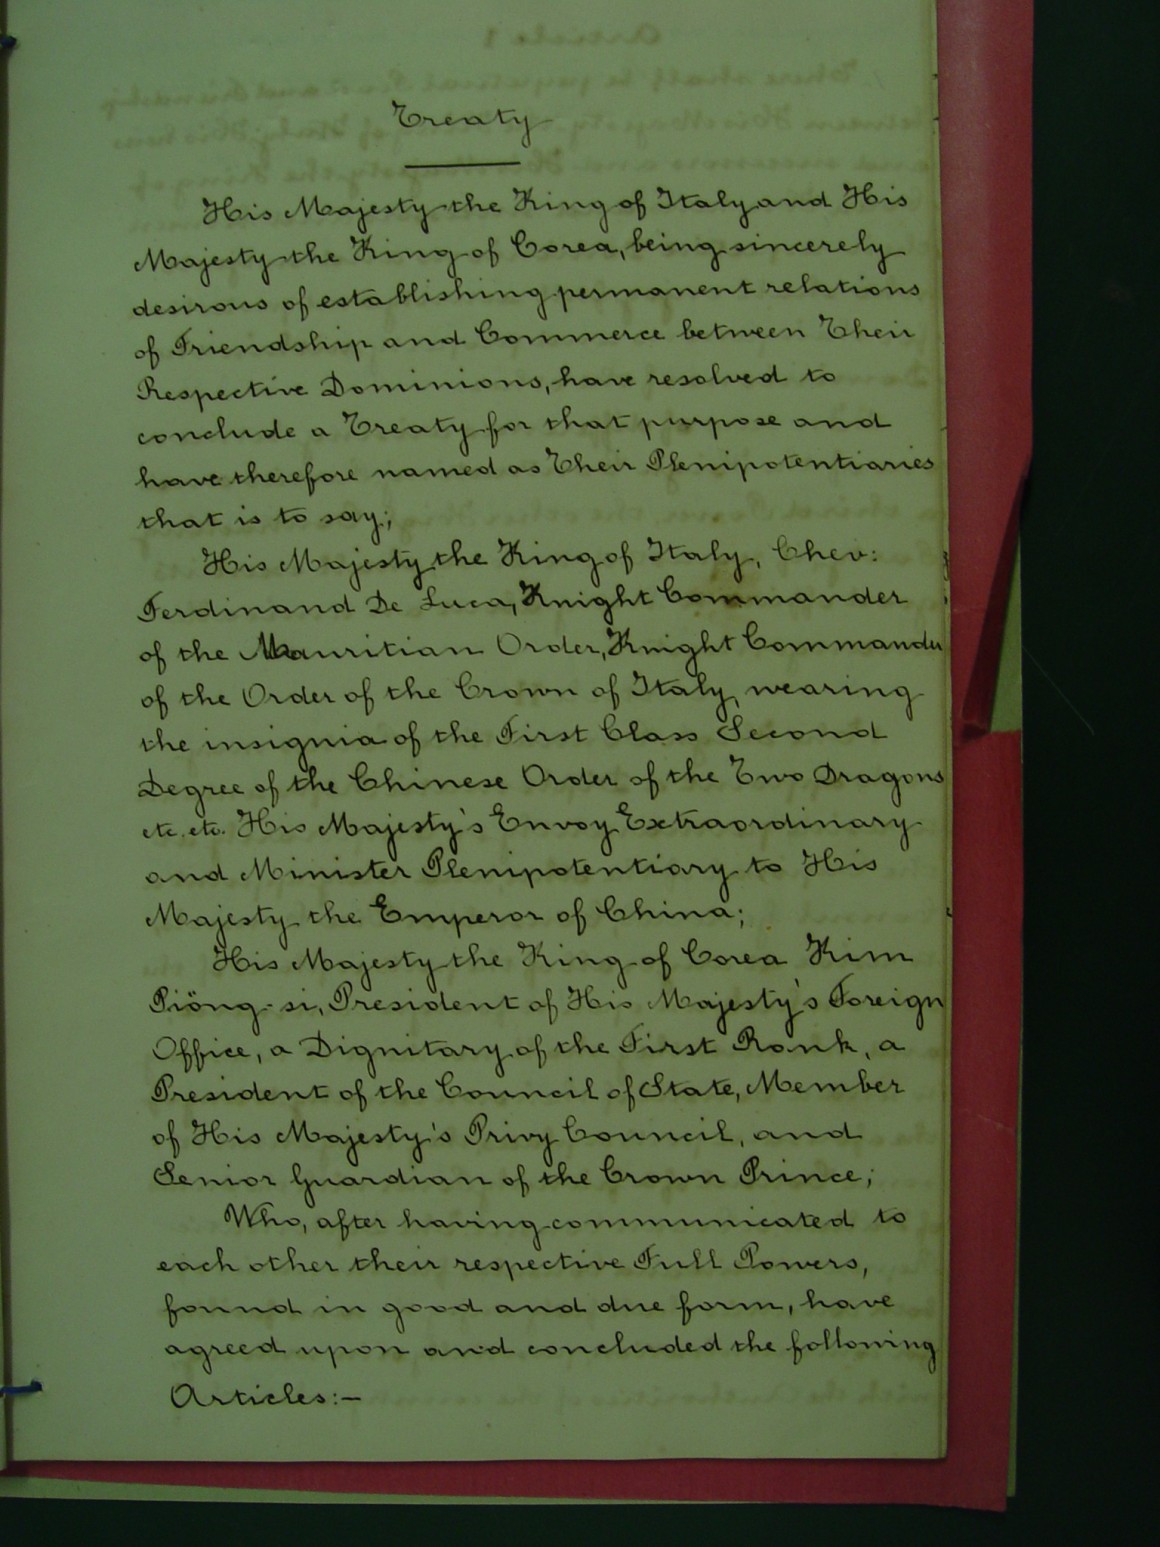 Treaty
His Majesty the King of Italy and His
Majesty the King of Corea, being sincerely
desirous of establishing permanent relations
of Friendship and Commerce between Their
Respective Dominions, have resolved to
conclude a Treaty for that purpose and
have therefore named as Their Plenipotentiaries
that is to say;
His Majesty the King of Italy, Chev:
Ferdinand De Luca, Knight Commander
of the Mauritian Order, Knight Commander
of the Order of the Crown of Italy, wearing
the insignia of the First Class Second
Degree of the Chinese Order of the Two Dragons
etc. etc. His Majesty's Envoy Extraordinary
and Minister Plenipotentiary to His
Majesty the Emperor of China;
His Majesty the King of Corea Kim
Piöng-si, President of His Majesty's Foreign
Office, a Dignitary of the First Rank, a
President of the Council of State, Member
of His Majesty's Privy Council, and
Senior Guardian of the Crown Prince;
Who, after having communicated to
each other their respective Full Powers,
found in good and due form, have
agreed upon and concluded the following
Articles:—